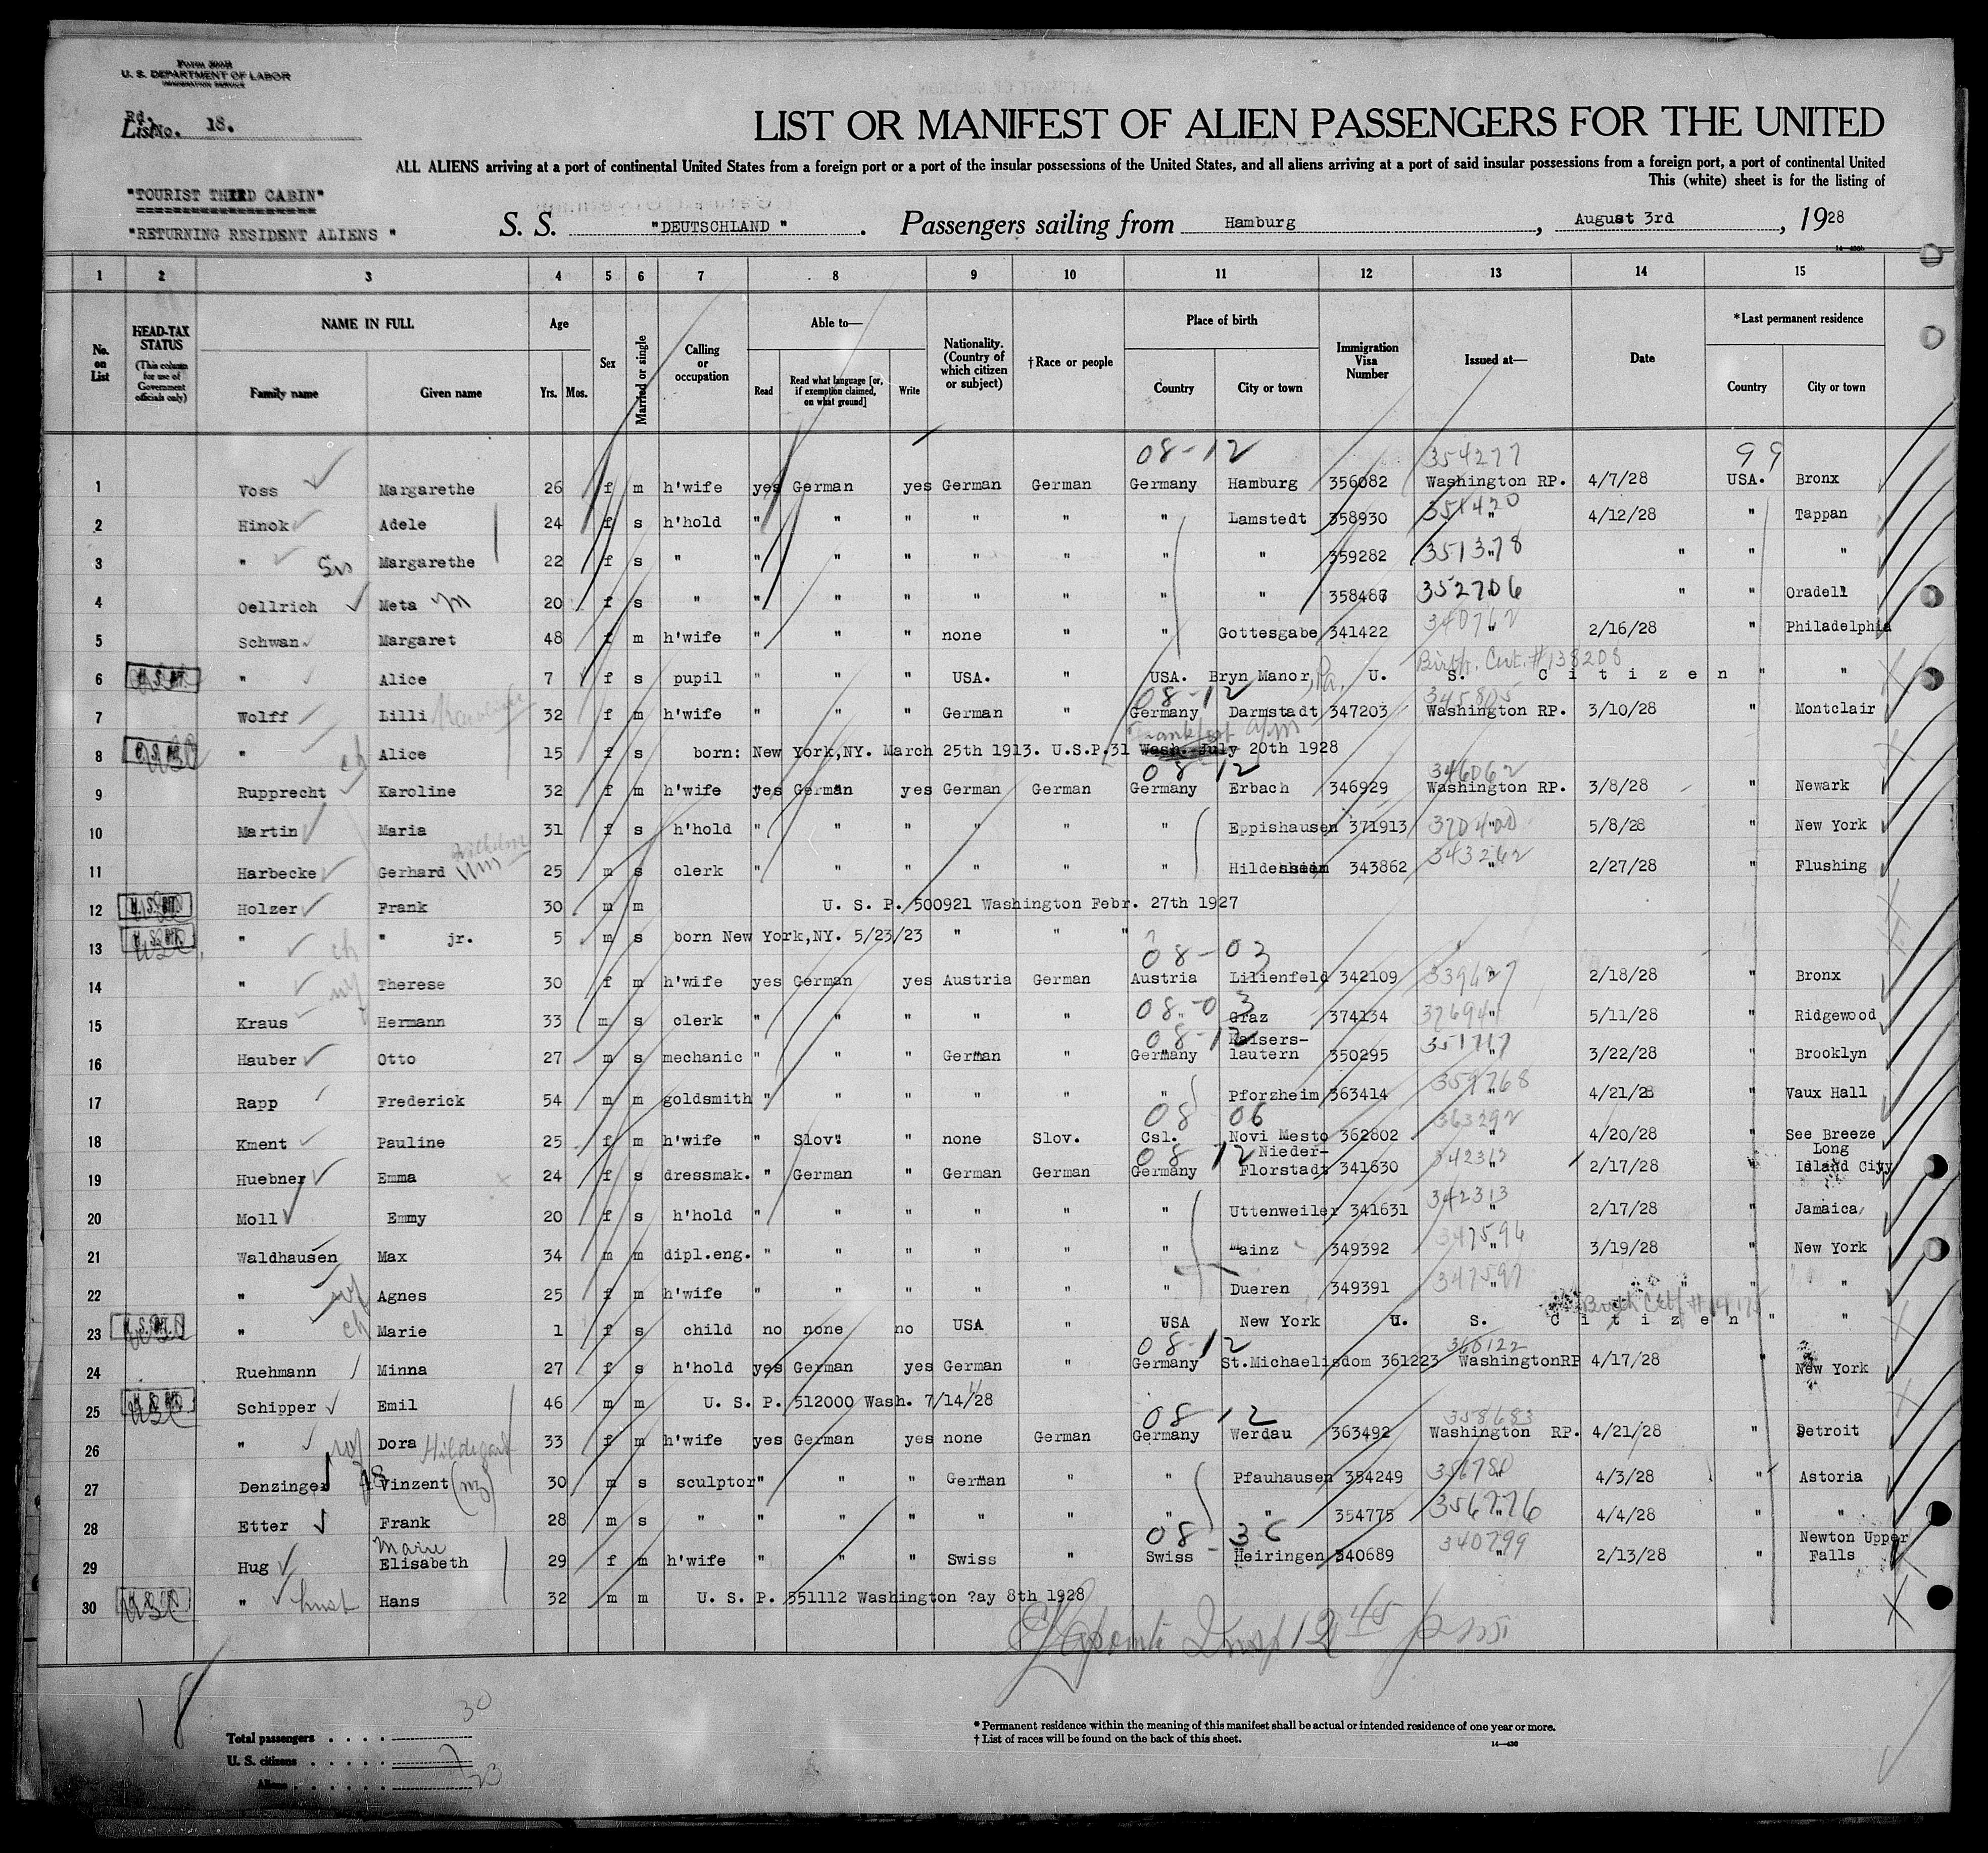 Form 500B
U. S. DEPARTMENT OF LABOR
IMMIGRATION SERVICE
Rd.
List No. 18.
LIST OR MANIFEST OF ALIEN PASSENGERS FOR THE UNITED
ALL ALIENS arriving at a port of continental United States from a foreign port or a port of the insular possessions of the United States, and all aliens arriving at a port of said insular possessions from a foreign port, a port of continental United
This (white) sheet is for the listing of
"TOURIST THIRD CABIN"
"RETURNING RESIDENT ALIENS "
S. S. "DEUTSCHLAND " . Passengers sailing from Hamburg , August 3rd , 1928
1 2 3 4 5 6 7 8 9 10 11 12 13 14 15
No. on List
HEAD-TAX STATUS (This column for use of Government officials only)
NAME IN FULL Family name Given name
Age Yrs. Mos.
Sex
Married or single
Calling or occupation
Able to— Read Read what language [or, if exemption claimed, on what ground] Write
Nationality. (Country of which citizen or subject)
†Race or people
Place of birth Country City or town
Immigration Visa Number
Issued at—
Date
*Last permanent residence Country City or town
08-12 354277 99
1 Voss Margarethe 26 f m h'wife yes German yes German German Germany Hamburg 356082 Washington RP. 4/7/28 USA. Bronx
2 Hinok Adele 24 f s h'hold " " " " " " Lamstedt 358930 351420 " 4/12/28 " Tappan
3 " Sis Margarethe 22 f s " " " " " " " " 359282 351378 " " " "
4 Oellrich Meta m 20 f s " " " " " " " " 358487 352706 " " Oradell
5 Schwan Margaret 48 f m h'wife " " " none " " Gottesgabe 341422 340762 " 2/16/28 " Philadelphia
Birth. Cert. #138208
6 " Alice 7 f s pupil " " " USA. " USA. Bryn Manor, Pa. U. S. C i t i z e n " "
08-12 345805
7 Wolff Lilli Karoline 32 f m h'wife " " " German " Germany Darmstadt 347203 Washington RP. 3/10/28 " Montclair
Frankfort a/m
8 " ch Alice 15 f s born: New York,NY. March 25th 1913. U.S.P.31 Wash. July 20th 1928
08-12 346062
9 Rupprecht Karoline 32 f m h'wife yes German yes German German Germany Erbach 346929 Washington RP. 3/8/28 " Newark
10 Martin Maria 31 f s h'hold " " " " " " Eppishausen 371913 370400 " 5/8/28 " New York
Wilhelm
11 Harbecke Gerhard Wm 25 m s clerk " " " " " " Hildesheim 343862 343262 " 2/27/28 " Flushing
12 Holzer Frank 30 m m U. S. P. 500921 Washington Febr. 27th 1927
13 " ch " jr. 5 m s born New York,NY. 5/23/23 " " "
08-03
14 " wf Therese 30 f m h'wife yes German yes Austria German Austria Lilienfeld 342109 339627 " 2/18/28 " Bronx
08-03
15 Kraus Hermann 33 m s clerk " " " " " " Graz 374134 " 5/11/28 " Ridgewood
08-12
16 Hauber Otto 27 m s mechanic " " " German " Germany Kaisers-lautern 350295 351717 " 3/22/28 " Brooklyn
17 Rapp Frederick 54 m m goldsmith " " " " " " Pforzheim 363414 359768 " 4/21/28 " Vaux Hall
08 06
18 Kment Pauline 25 f m h'wife " Slov. " none Slov. Csl. Novi Mesto 362802 363292 " 4/20/28 " See Breeze
08 12
19 Huebner Emma 24 f s dressmak. " German " German German Germany Nieder-Florstadt 341630 342312 " 2/17/28 " Long Island City
20 Moll Emmy 20 f s h'hold " " " " " " Uttenweiler 341631 342313 " 2/17/28 " Jamaica
21 Waldhausen Max 34 m m dipl.eng. " " " " " " Mainz 349392 347596 " 3/19/28 " New York
22 " wf Agnes 25 f m h'wife " " " " " " Dueren 349391 347597 " " " "
23 " ch Marie 1 f s child no none no USA " USA New York U. S. C i t i z e n " "
08-12 360122
24 Ruehmann Minna 27 f s h'hold yes German yes German " Germany St.Michaelisdom 361223 WashingtonRP 4/17/28 " New York
25 Schipper Emil 46 m m U. S. P. 512000 Wash. 7/14/28
08 12 358683
26 " wf Dora Hildegard 33 f m h'wife yes German yes none German Germany Werdau 363492 Washington RP. 4/21/28 " Detroit
27 Denzinger Vinzent 30 m s sculptor " " " German " " Pfauhausen 354249 356780 " 4/3/28 " Astoria
28 Etter Frank 28 m s " " " " " " " " 354775 356776 " 4/4/28 " "
08-36
29 Hug Marie Elisabeth 29 f m h'wife " " " Swiss " Swiss Heiringen 340689 340799 " 2/13/28 " Newton Upper Falls
30 " husb Hans 32 m m U. S. P. 551112 Washington ?ay 8th 1928
Insp 12 45 pm
18
Total passengers . . . . 30
U. S. citizens . . . . . 7
Aliens . . . . . . 23
* Permanent residence within the meaning of this manifest shall be actual or intended residence of one year or more.
† List of races will be found on the back of this sheet.
14—430